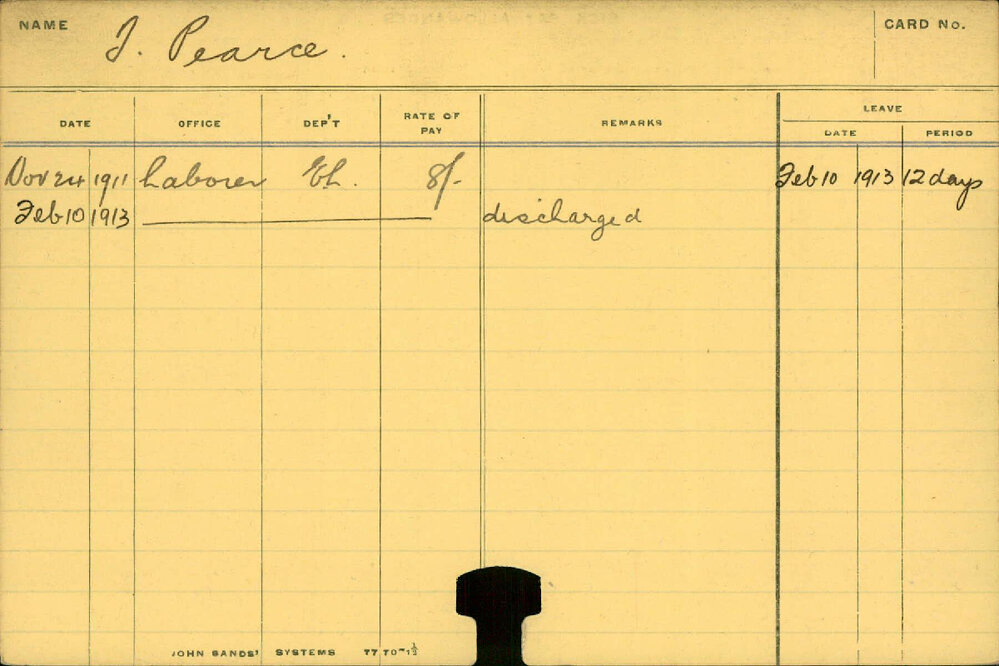 NAME J. Pearce. CARD No.
DATE OFFICE DEP'T RATE OF PAY REMARKS LEAVE DATE PERIOD
Nov 24 1911 Laborer 8/- Feb 10 1913 12 days
Feb 10 1913 discharged
JOHN SANDS' SYSTEMS